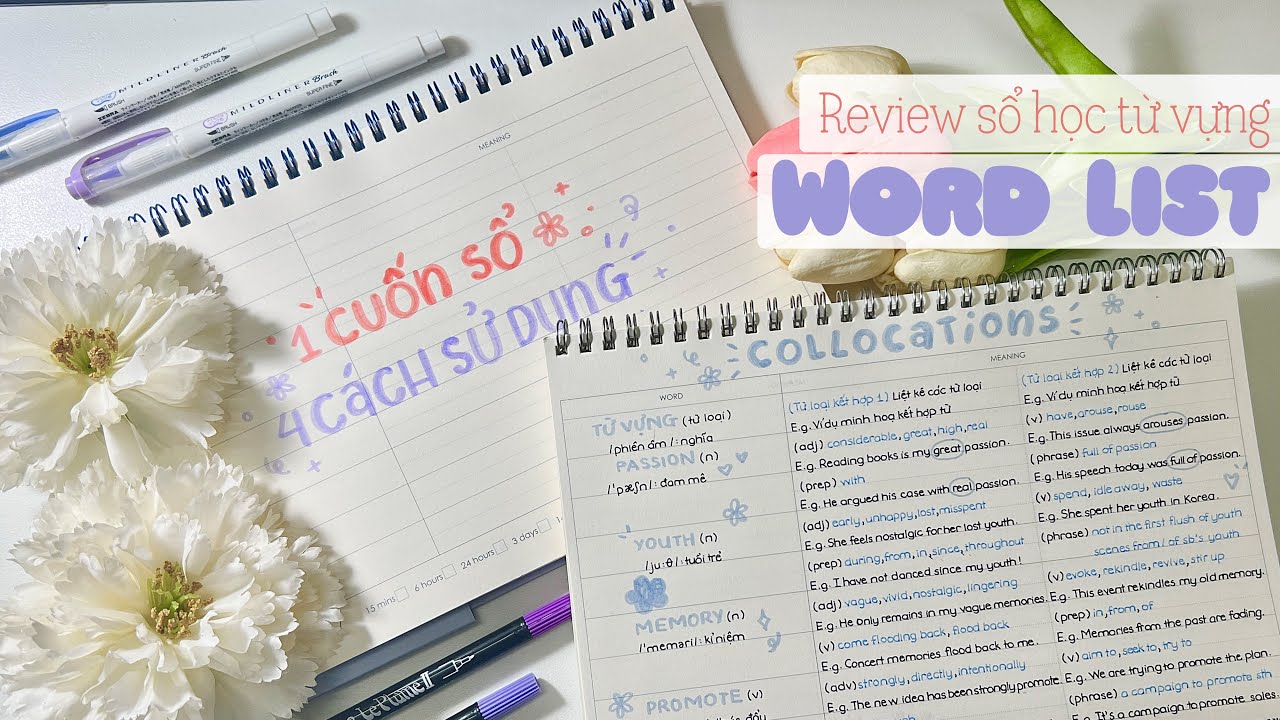 Review sổ học từ vựng
WORD LIST
MILDLINER Brush
BRUSH
SUPER FINE
ZEBRA
MILDLINER Brush
BRUSH
SUPER FINE
ZEBRA
MEANING
1 CUỐN SỔ
4 CÁCH SỬ DỤNG
15 mins
6 hours
24 hours
3 days
COLLOCATIONS
WORD
MEANING
TỪ VỰNG (từ loại)
/phiên âm/: nghĩa
PASSION (n)
/ˈpæʃn/: đam mê
YOUTH (n)
/juːθ/: tuổi trẻ
MEMORY (n)
/ˈmeməri/: kỉ niệm
PROMOTE (v)
(Từ loại kết hợp 1) Liệt kê các từ loại
E.g. Ví dụ minh hoạ kết hợp từ
(adj) considerable, great, high, real
E.g. Reading books is my great passion.
(prep) with
E.g. He argued his case with real passion.
(adj) early, unhappy, lost, misspent
E.g. She feels nostalgic for her lost youth.
(prep) during, from, in, since, throughout
E.g. I have not danced since my youth!
(adj) vague, vivid, nostalgic, lingering
E.g. He only remains in my vague memories.
(v) come flooding back, flood back
E.g. Concert memories flood back to me.
(adv) strongly, directly, intentionally
E.g. The new idea has been strongly promote
(Từ loại kết hợp 2) Liệt kê các từ loại
E.g. Ví dụ minh hoạ kết hợp từ
(v) have, arouse, rouse
E.g. This issue always arouses passion.
(phrase) full of passion
E.g. His speech today was full of passion.
(v) spend, idle away, waste
E.g. She spent her youth in Korea.
(phrase) not in the first flush of youth
scenes from/of sb's youth
(v) evoke, rekindle, revive, stir up
E.g. This event rekindles my old memory.
(prep) in, from, of
E.g. Memories from the past are fading.
(v) aim to, seek to, try to
E.g. We are trying to promote the plan.
(phrase) a campaign to promote sth
E.g. It's a campaign to promote sales
Le Plume II